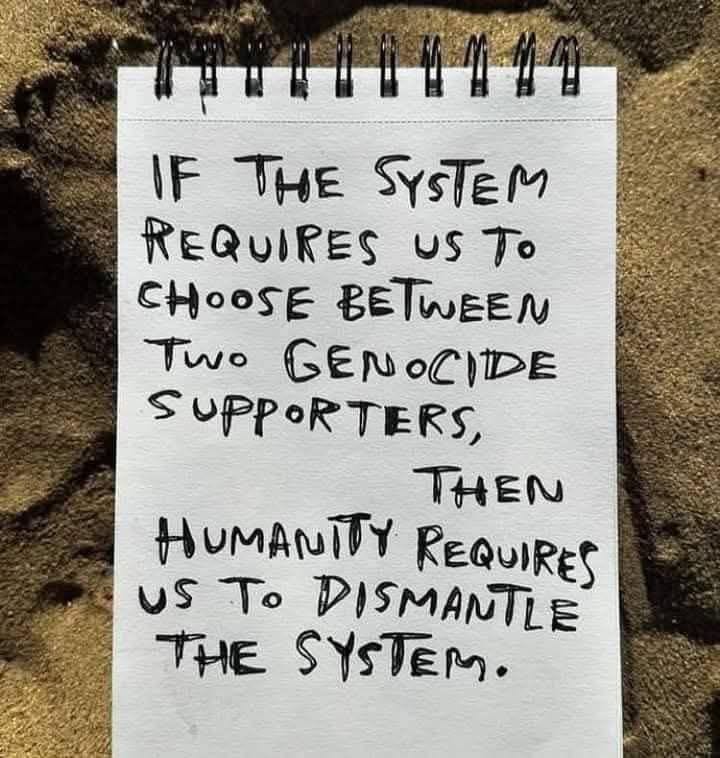 IF THE SYSTEM
REQUIRES US TO
CHOOSE BETWEEN
TWO GENOCIDE
SUPPORTERS,
THEN
HUMANITY REQUIRES
US TO DISMANTLE
THE SYSTEM.